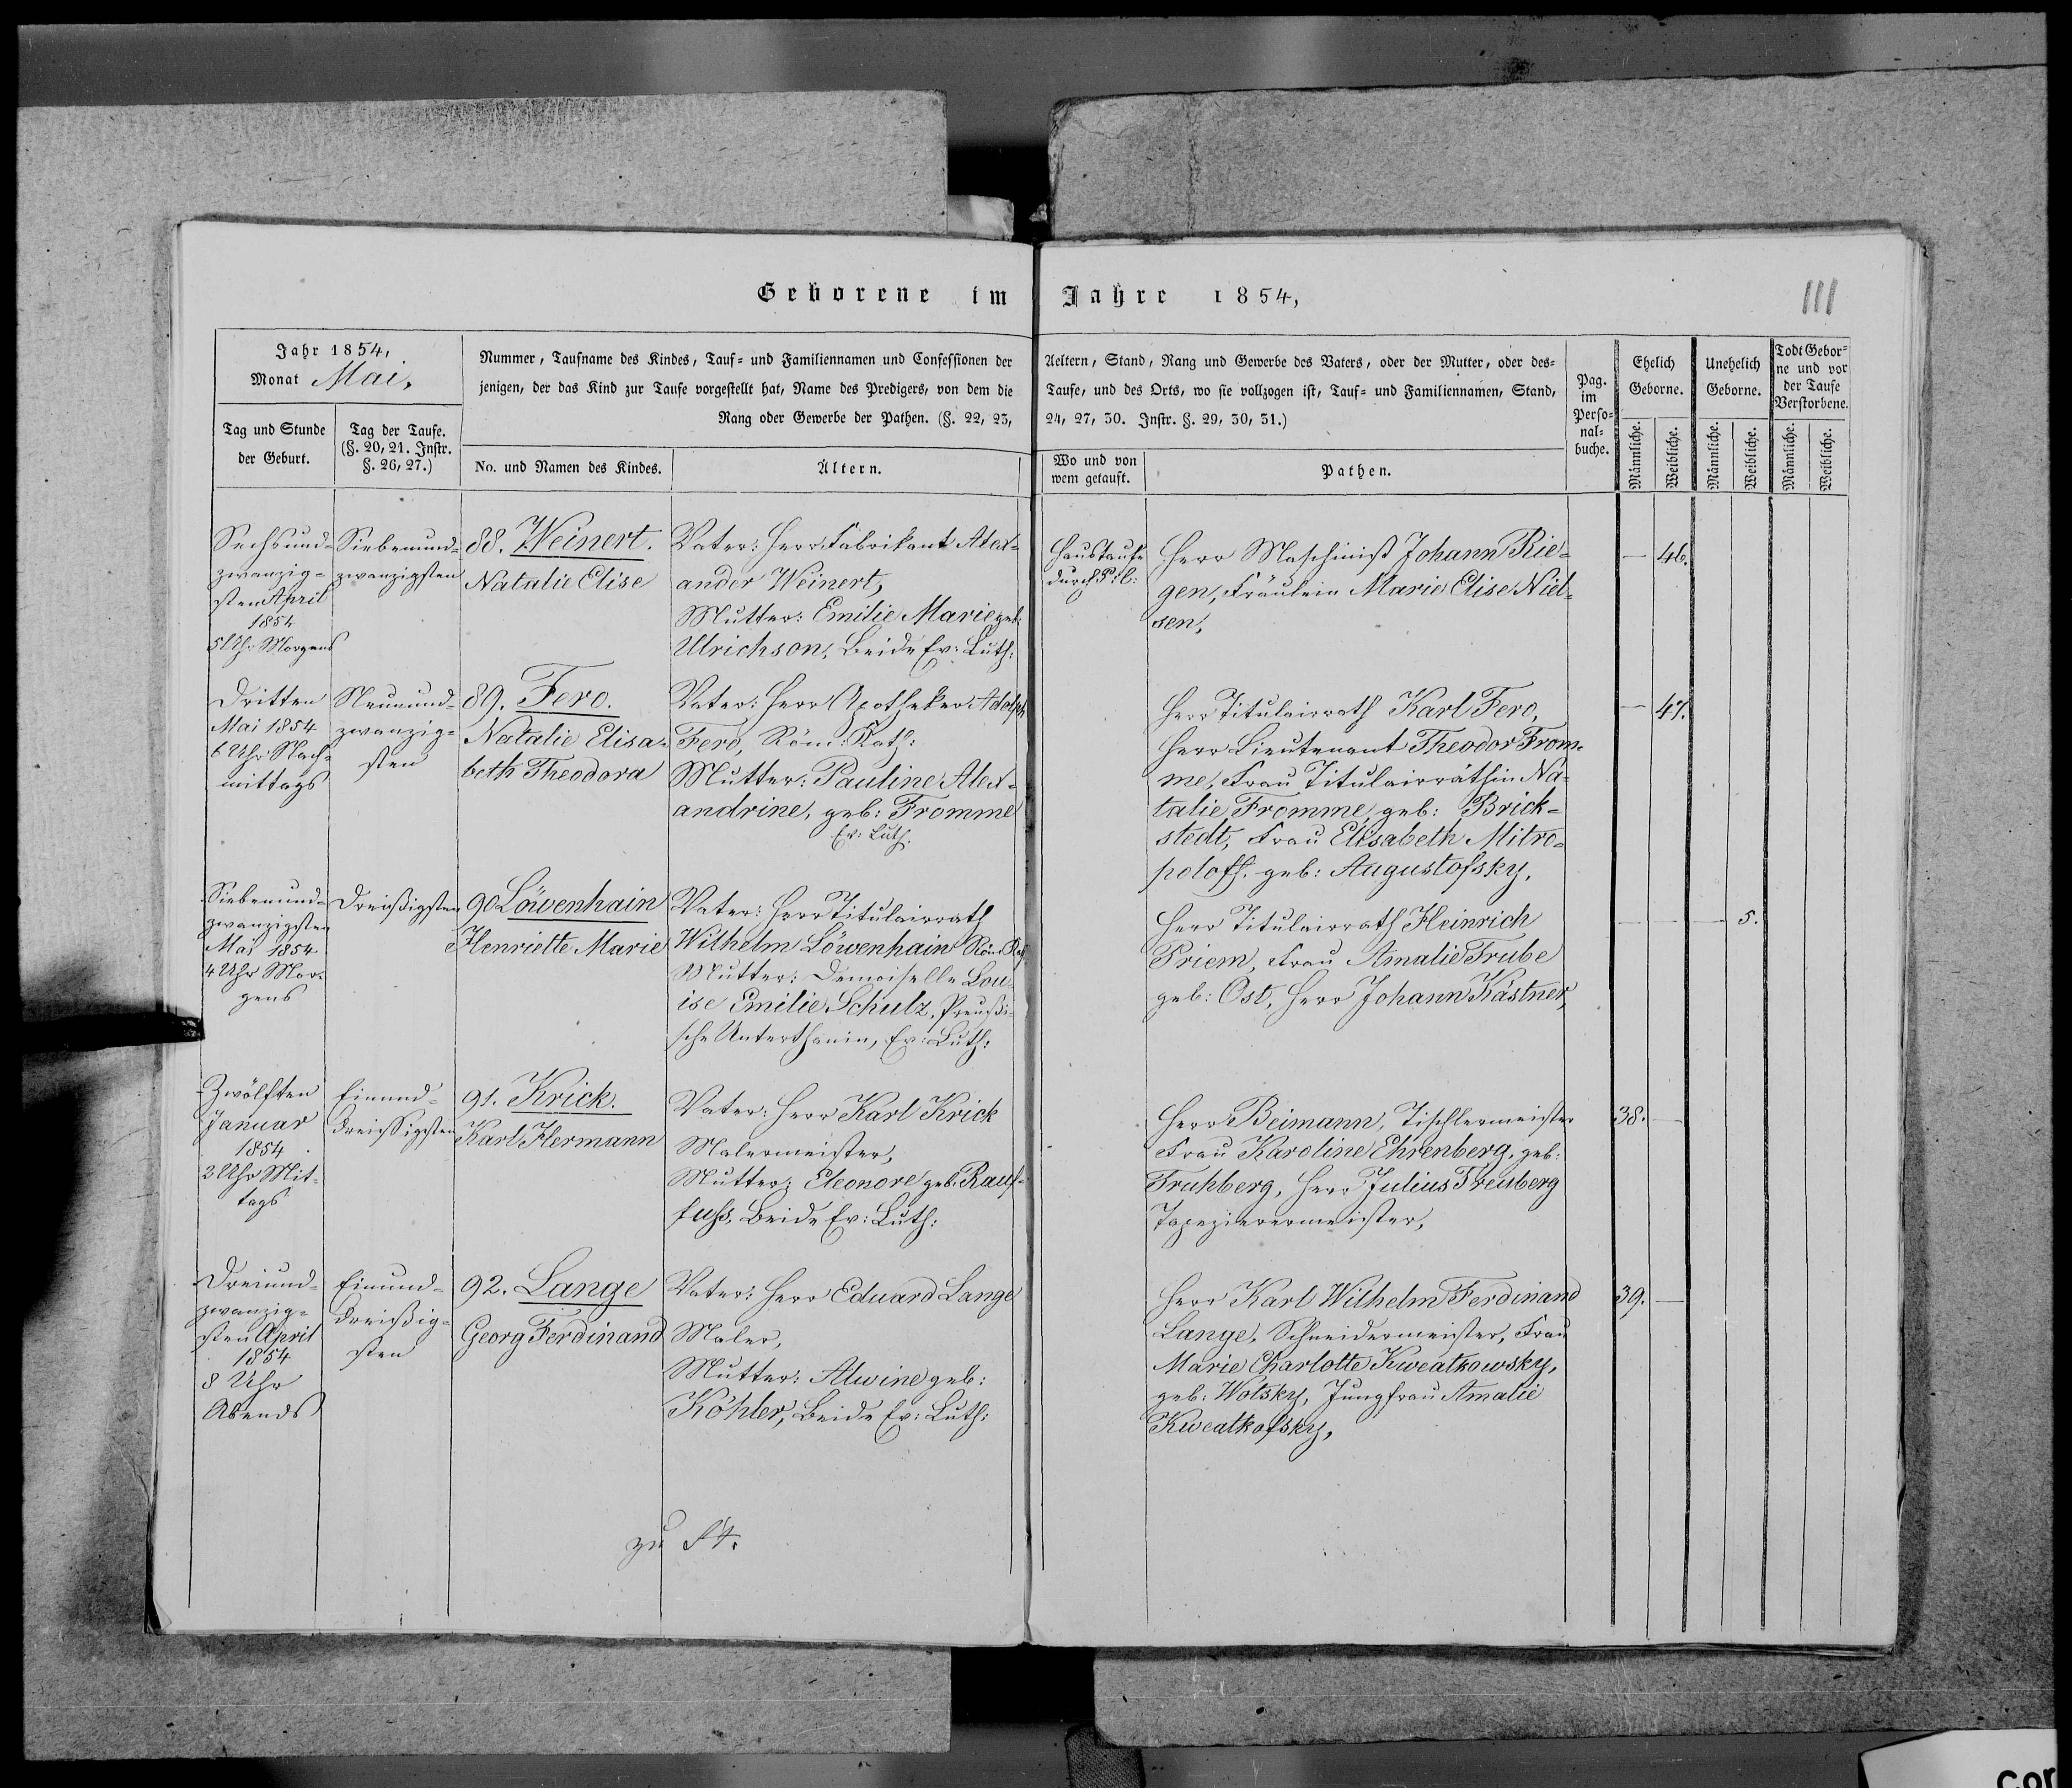 Geborene im Jahre 1854,
111
Jahr 1854,
Monat Mai.
Nummer, Taufname des Kindes, Tauf- und Familiennamen und Confessionen der
jenigen, der das Kind zur Taufe vorgestellt hat, Name des Predigers, von dem die
Rang oder Gewerbe der Pathen. (§. 22, 23,
Aeltern, Stand, Rang und Gewerbe des Vaters, oder der Mutter, oder des-
Taufe, und des Orts, wo sie vollzogen ist, Tauf- und Familiennamen, Stand,
24, 27, 30. Instr. §. 29, 30, 31.)
Pag.
im
Perso-
nal-
buche.
Ehelich
Geborne.
Unehelich
Geborne.
Todt Gebor-
ne und vor
der Taufe
Verstorbene.
Tag und Stunde
der Geburt.
Tag der Taufe.
(§. 20, 21. Instr.
§. 26, 27.)
No. und Namen des Kindes.
Ältern.
Wo und von
wem getauft.
Pathen.
Männliche.
Weibliche.
Männliche.
Weibliche.
Männliche.
Weibliche.
Sechsund-
zwanzig-
sten April
1854
5 Uhr Morgens
Siebenund-
zwanzigsten
88. Weinert.
Natalie Elise
Vater: Herr Fabrikant Alex-
ander Weinert,
Mutter: Emilie Marie geb:
Ulrichson, Beide Ev: Luth:
Haustaufe
durch
Herr Maschinist Johann Rie-
gen, Fräulein Marie Elise Niel-
sen,
— 46.
Dritten
Mai 1854
6 Uhr Nach-
mittags
Neunund-
zwanzig-
sten
89. Fero.
Natalie Elisa-
beth Theodora
Vater: Herr Apotheker Adolph
Fero, Röm: Kath:
Mutter: Pauline Alex-
andrine, geb: Fromme
Ev: Luth.
Herr Titulairrath Karl Fero,
Herr Lieutenant Theodor From-
me, Frau Titulairräthin Na-
talie Fromme, geb: Brick-
stedt, Frau Elisabeth Mitro-
poloff. geb: Augustofsky,
— 47.
Siebenund-
zwanzigsten
Mai 1854
4 Uhr Mor-
gens
Dreißigsten
90 Löwenhain
Henriette Marie
Vater: Herr Titulairrath
Wilhelm Löwenhain Röm: Kath
Mutter: Demoiselle Lou-
ise Emilie Schulz, Preußi-
sche Unterthanin, Ev: Luth:
Herr Titulairrath Heinrich
Priem, Frau Amalie Trube
geb: Ost, Herr Johann Kästner,
— — — 5.
Zwölften
Januar
1854
2 Uhr Mit-
tags
Einund-
dreissigsten
91. Krick.
Karl Hermann
Vater: Herr Karl Krick
Malermeister,
Mutter: Eleonore geb. Rauf-
fuss, Beide Ev: Luth:
Herr Beimann, Tischlermeister
Frau Karoline Ehrenberg, geb:
Fruhberg, Herr Julius Freuberg
Tapezierermeister,
38. —
Dreiund-
zwanzig-
sten April
1854
8 Uhr
Abends
Einund-
dreißig-
sten
92. Lange
Georg Ferdinand
Vater: Herr Eduard Lange
Maler,
Mutter: Alwine geb:
Köhler, Beide Ev: Luth:
Herr Karl Wilhelm Ferdinand
Lange, Schneidermeister, Frau
Marie Charlotte Kweatkowsky,
geb: Wotsky, Jungfrau Amalie
Kweatkofsky,
39. —
zu